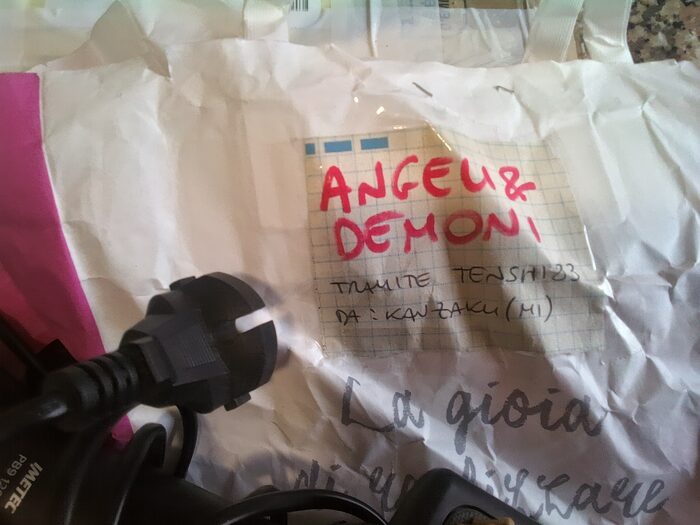 ANGELI &
DEMONI
TRAMITE TENSHI83
DA: KANZAKU (MI)
La gioia
di
IMETEC